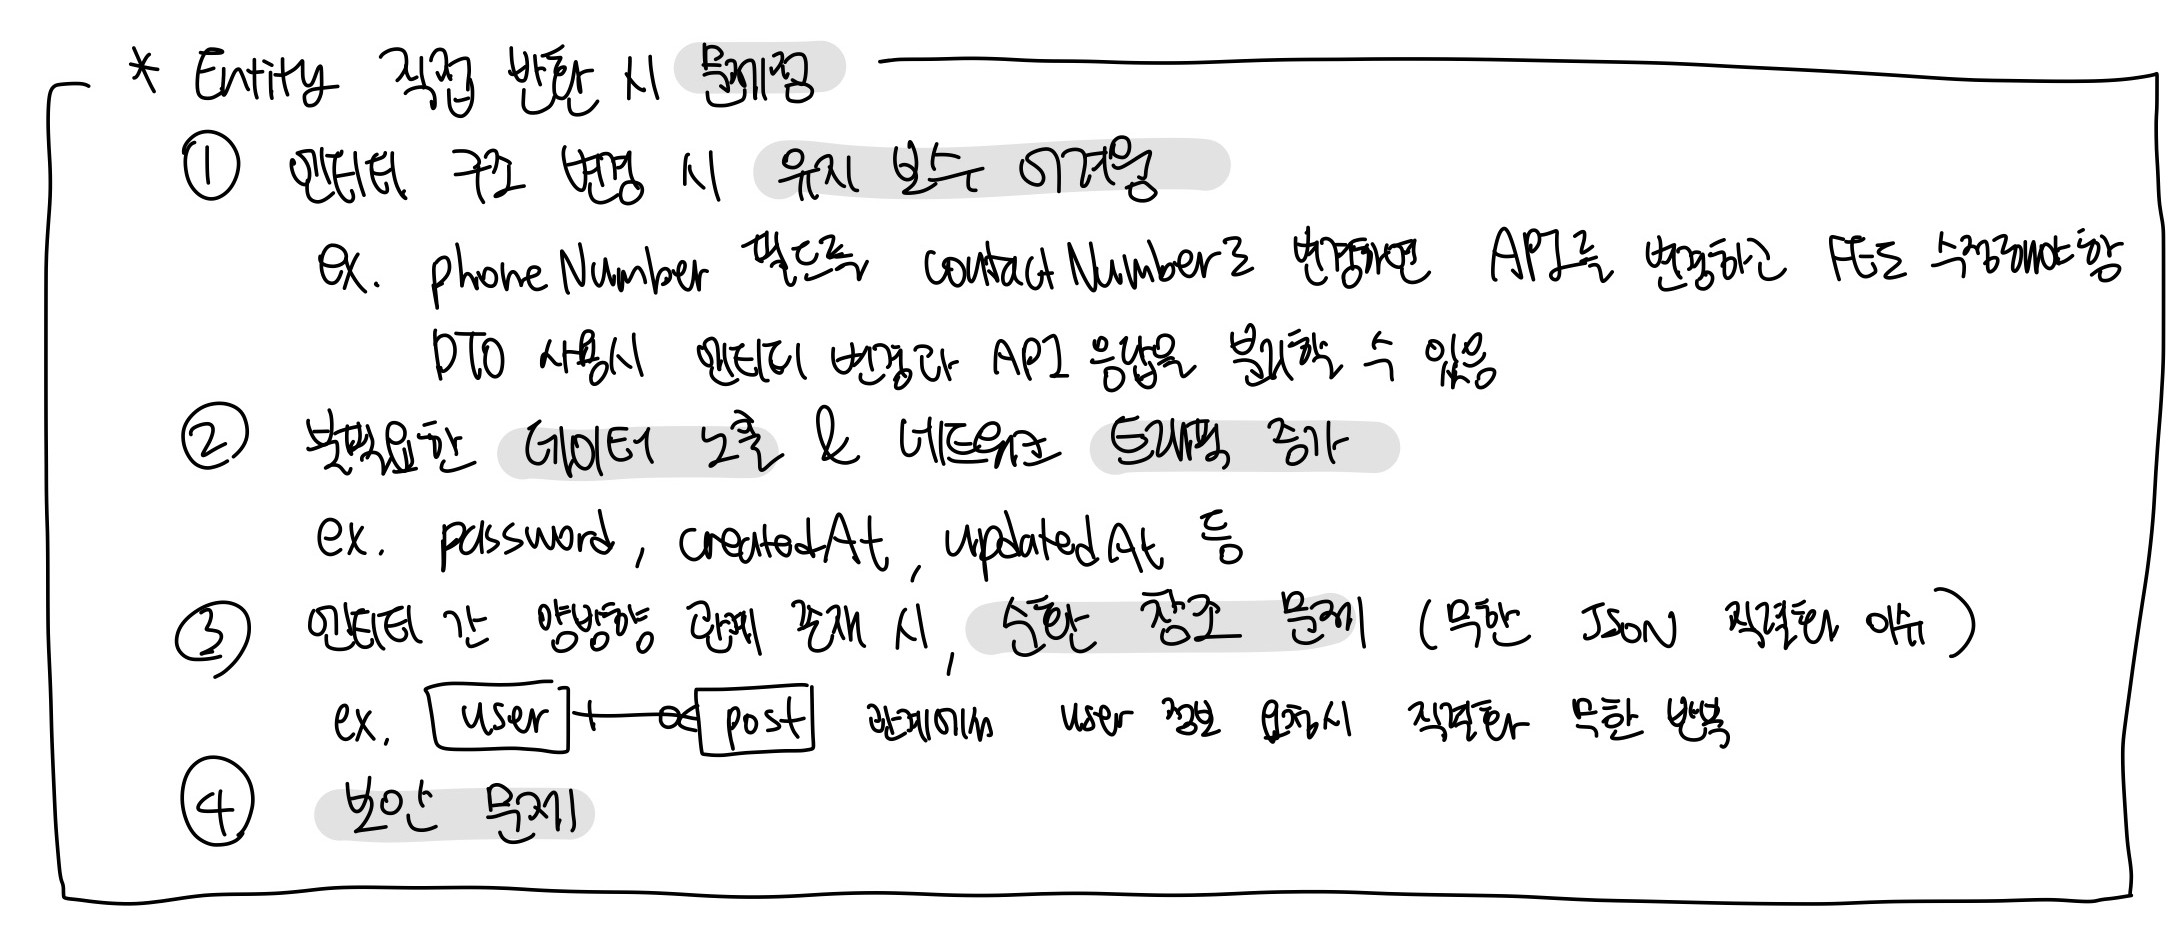 * Entity 직접 반환 시 문제점
① 엔터티 구조 변경 시 유지 보수 어려움
ex. phoneNumber 필드를 contactNumber로 변경하면 API를 변경하고 FE도 수정해야함
DTO 사용시 엔터티 변경과 API 응답을 분리할 수 있음
② 불필요한 데이터 노출 & 네트워크 트래픽 증가
ex. password, createdAt, updatedAt 등
③ 엔터티 간 양방향 관계 존재 시, 순환 참조 문제 (무한 JSON 직렬화 이슈)
ex. user post 관계에서 user 정보 요청시 직렬화 무한 반복
④ 보안 문제